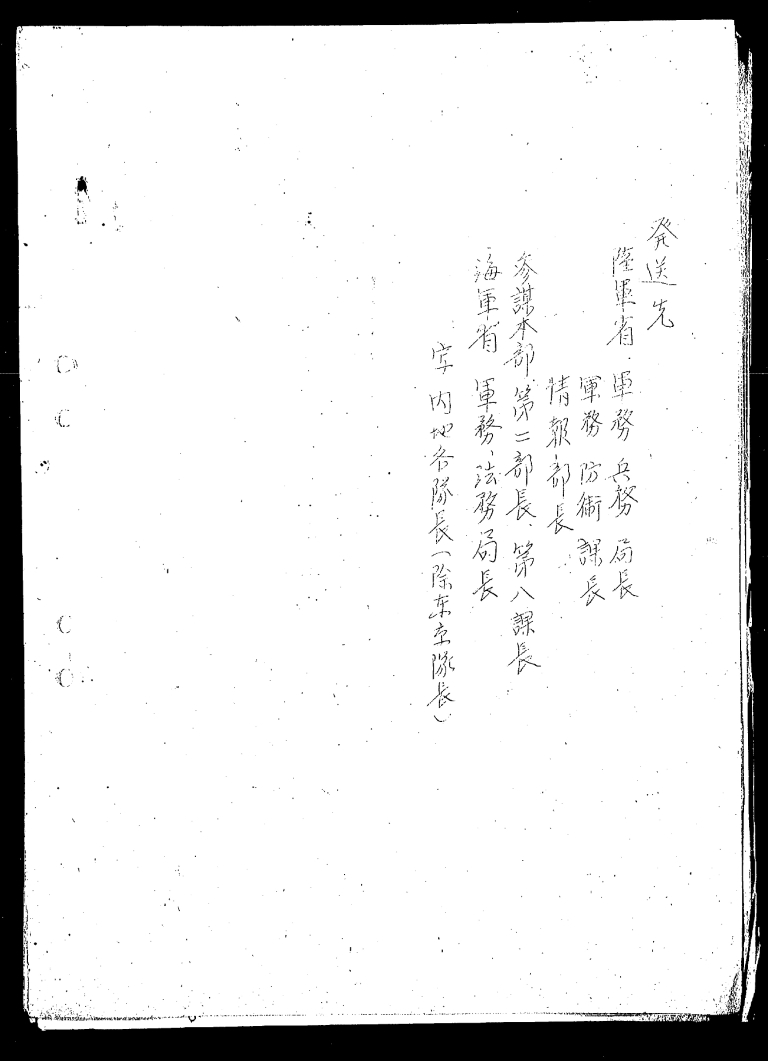 発送先
陸軍省、軍務 兵務 局長
軍務 防衛 課長
情報部長
参謀本部 第二部長、第八課長
海軍省 軍務、法務局長
写 内地各隊長(除东京隊長)